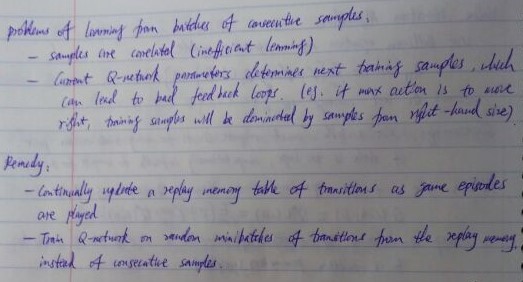 problems of learning from batches of consecutive samples.
- samples are correlated (inefficient learning)
- Current Q-network parameters determines next training samples, which
can lead to bad feedback loops. (eg. if max action is to move
right, training samples will be dominated by samples from right-hand size)
Remedy:
- Continually update a replay memory table of transitions as game episodes
are played
- Train Q-network on random minibatches of transitions from the replay memory,
instead of consecutive samples.